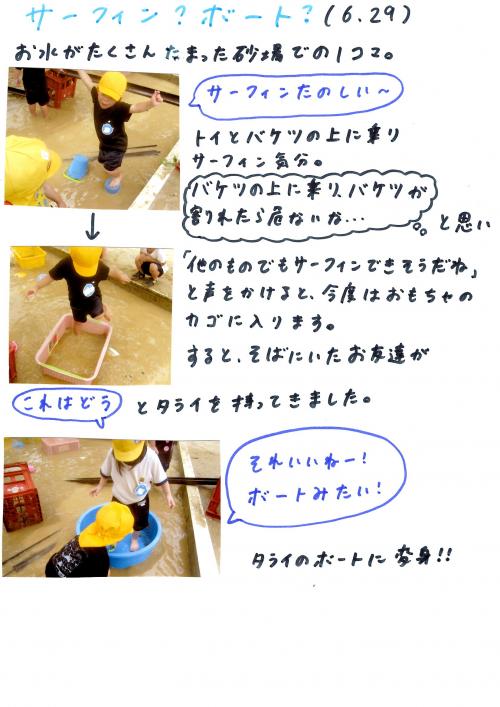 サーフィン?ボート?(6.29)
お水がたくさんたまった砂場での1コマ。
サーフィンたのしい～
トイとバケツの上に乗り
サーフィン気分。
バケツの上に乗り、バケツが
割れたら危ないな…
と思い
「他のものでもサーフィンできそうだね」
と声をかけると、今度はおもちゃの
カゴに入ります。
すると、そばにいたお友達が
これはどう
とタライを持ってきました。
それいいねー!
ボートみたい!
タライのボートに変身!!